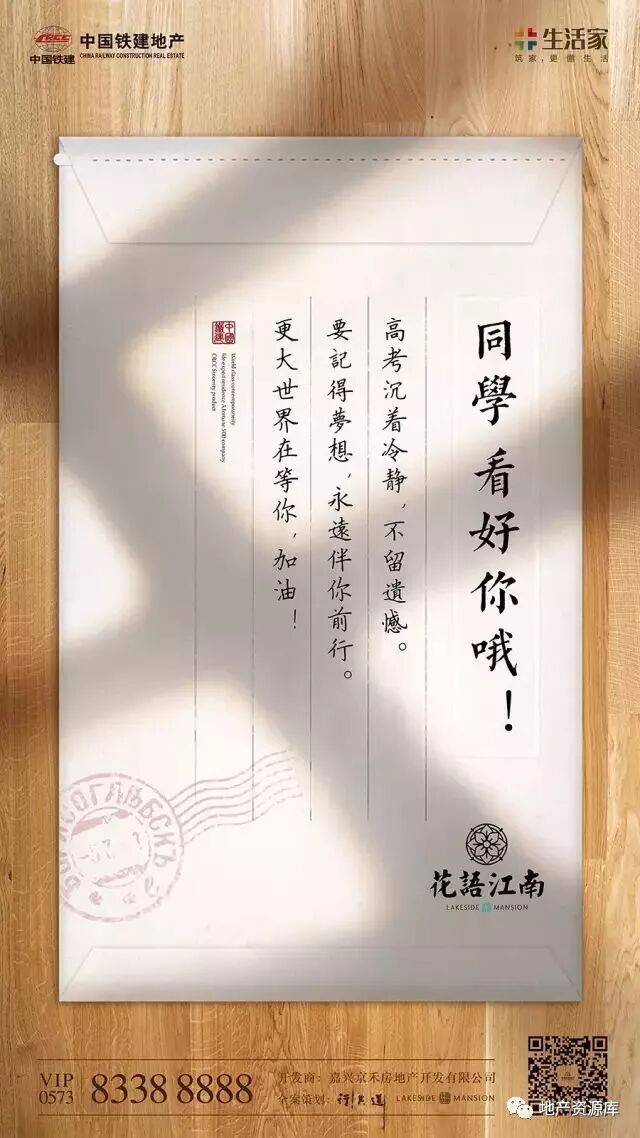 中国铁建
中国铁建地产
CHINA RAILWAY CONSTRUCTION REAL ESTATE
生活家
筑家,更懂生活
同學 看好你哦！
高考沉着冷静，不留遺憾。
要記得夢想，永遠伴你前行。
更大世界在等你，加油！
中國鐵建
World class contemporaneity
CRCC Sincerity product
花語江南
LAKESIDE MANSION
VIP
0573
8338 8888
开发商：嘉兴京禾房地产开发有限公司
全案策划：
LAKESIDE MANSION
地产资源库